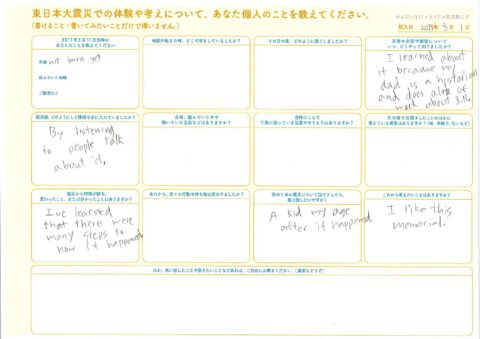 東日本大震災での体験や考えについて、あなた個人のことを教えてください。
(書けること・書いてみたいことだけで構いません。)
せんだい3.11メモリアル交流館にて
記入日 2025年 8月 1日
2011年3月11日当時の
あなたのことを教えてください
年齢 not born yet
住んでいた地域
ご職業など
地震が起きた時、どこで何をしていましたか?
その日の夜、どのように過ごしましたか?
災害の全容や被害について
いつ、どうやって知りましたか?
I learned about
it because my
dad is a historian
and does alot of
work about 3.11
震災後、どのようにして情報を手に入れていましたか?
By listening
to people talk
about it.
当時、読んでいた本や
聴いていた音楽などはありますか?
当時のことで
印象に残っている言葉ややりとりはありますか?
震災から時間が経ち、
変わったこと、または分かったことはありますか?
I've learned
that there were
many steps to
how it happened
あれから、日々の行動や持ち物は変わりましたか?
A kid my age
after it happened
これから考えたいことはありますか?
I like this
memorial.
ほか、思い返したことや書きたいことなどあれば、ご自由にお書きください。(裏面もどうぞ)